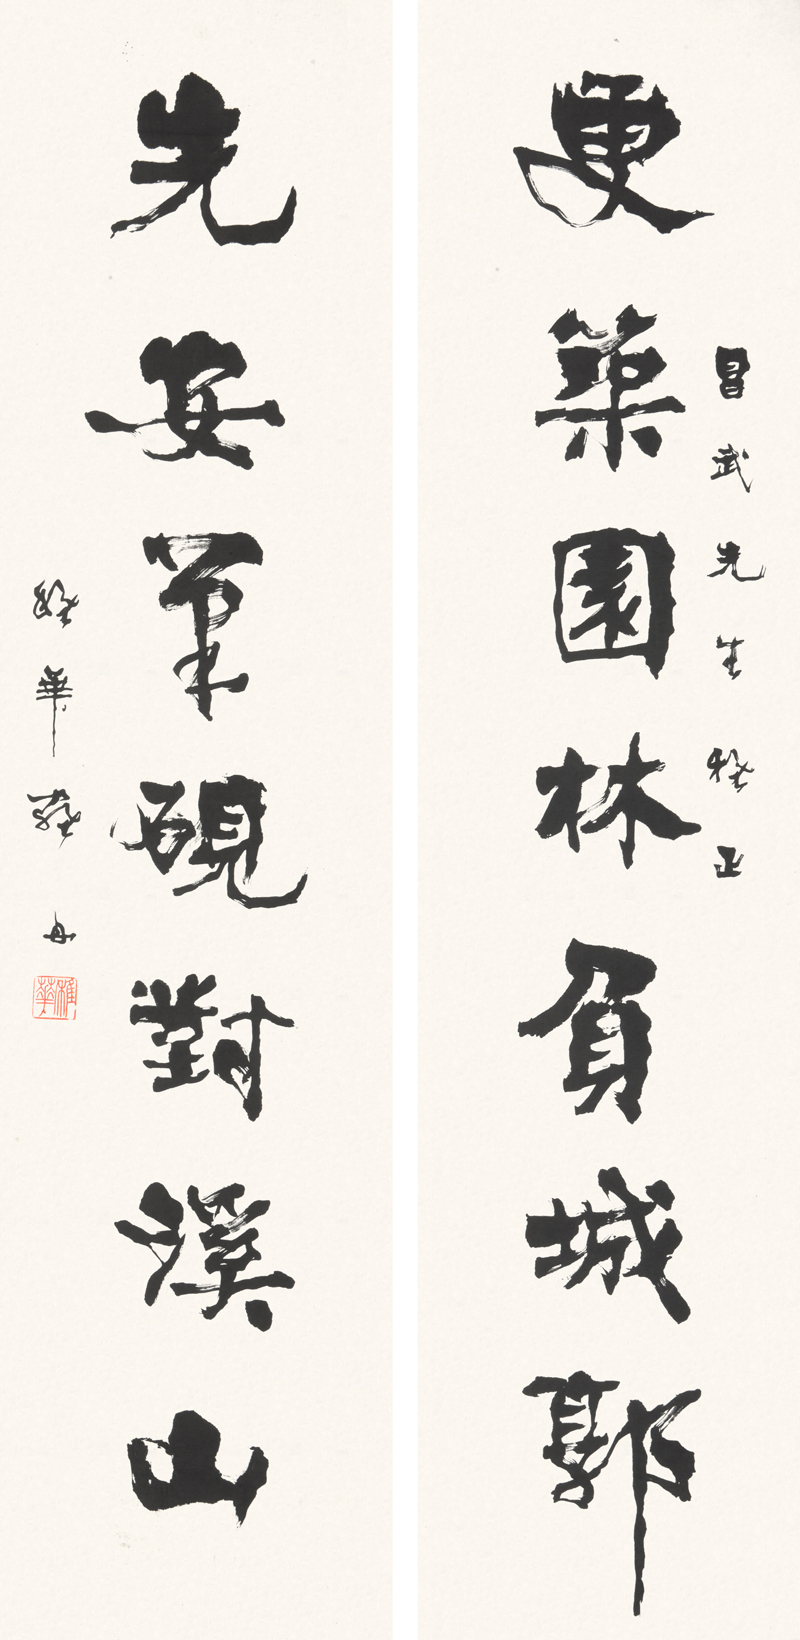 昌武先生雅正
更築園林負城郭
先安筆硯對溪山
稚華羅丹
稚華